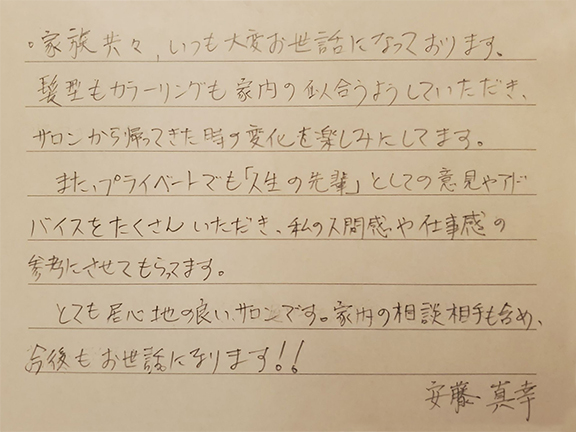 ・家族共々、いつも大変お世話になっております。
髪型もカラーリングも家内の似合うようしていただき、
サロンから帰ってきた時の変化を楽しみにしてます。
また、プライベートでも「人生の先輩」としての意見やアド
バイスをたくさんいただき、私の人間感や仕事感の
参考にさせてもらってます。
とても居心地の良いサロンです。家内の相談相手も含め、
今後もお世話になります!!
安藤 真幸